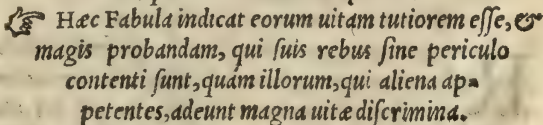 ☞ Hæc Fabula indicat eorum uitam tutiorem eſſe, &
magis probandam, qui ſuis rebus ſine periculo
contenti ſunt, quàm illorum, qui aliena ap⸗
petentes, adeunt magna uitæ diſcrimina.